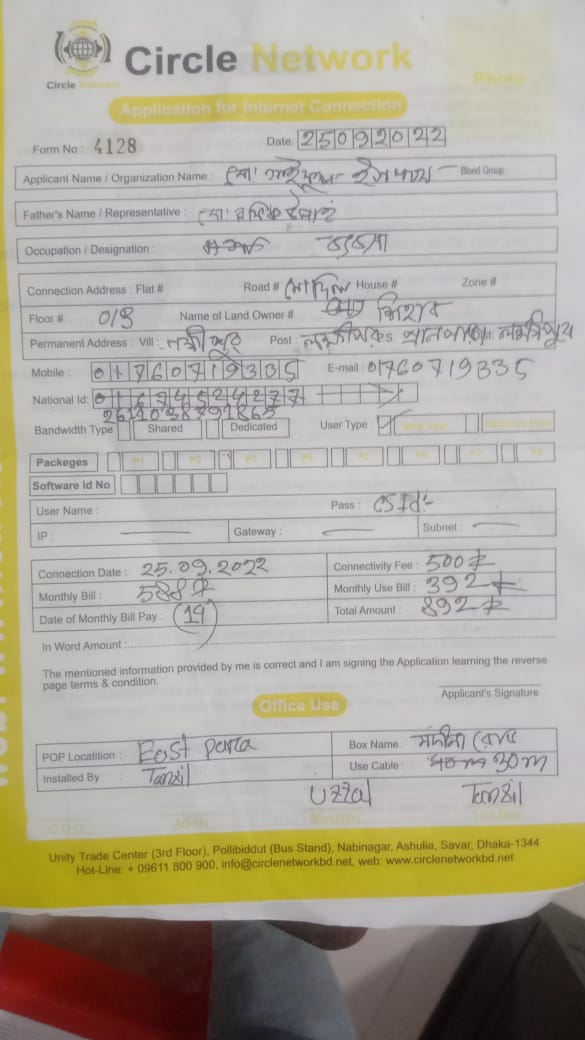 Circle Network
Circle Network
Photo
Application for Internet Connection
Form No : 4128
Date: 25092022
Applicant Name / Organization Name : মো: সাইফুল ইসলাম Blood Group
Father's Name / Representative : মো:
Occupation / Designation :
Connection Address : Flat # Road # House # Zone #
Floor # Name of Land Owner #
Permanent Address : Vill : লক্ষীপুর Post :
Mobile : 01760719335 E-mail : 01760719335
National Id: 01674524277
Bandwidth Type Shared Dedicated User Type :
Packeges P1 P2 P3 P4 P5 P6 P7 P8
Software Id No
User Name : Pass :
IP : Gateway : Subnet :
Connection Date : 25.09.2022 Connectivity Fee : 500
Monthly Bill : 588 Monthly Use Bill : 392
Date of Monthly Bill Pay : Total Amount : 892
In Word Amount :
The mentioned information provided by me is correct and I am signing the Application learning the reverse
page terms & condition.
Applicant's Signature
Office Use
POP Locatition : East para Box Name : মদীনা
Installed By : Tanzil Use Cable : 30m
Uzzal Tanzil
Admin Marketing Line Man
Unity Trade Center (3rd Floor), Pollibiddut (Bus Stand), Nabinagar, Ashulia, Savar, Dhaka-1344
Hot-Line: + 09611 800 900, info@circlenetworkbd.net, web: www.circlenetworkbd.net